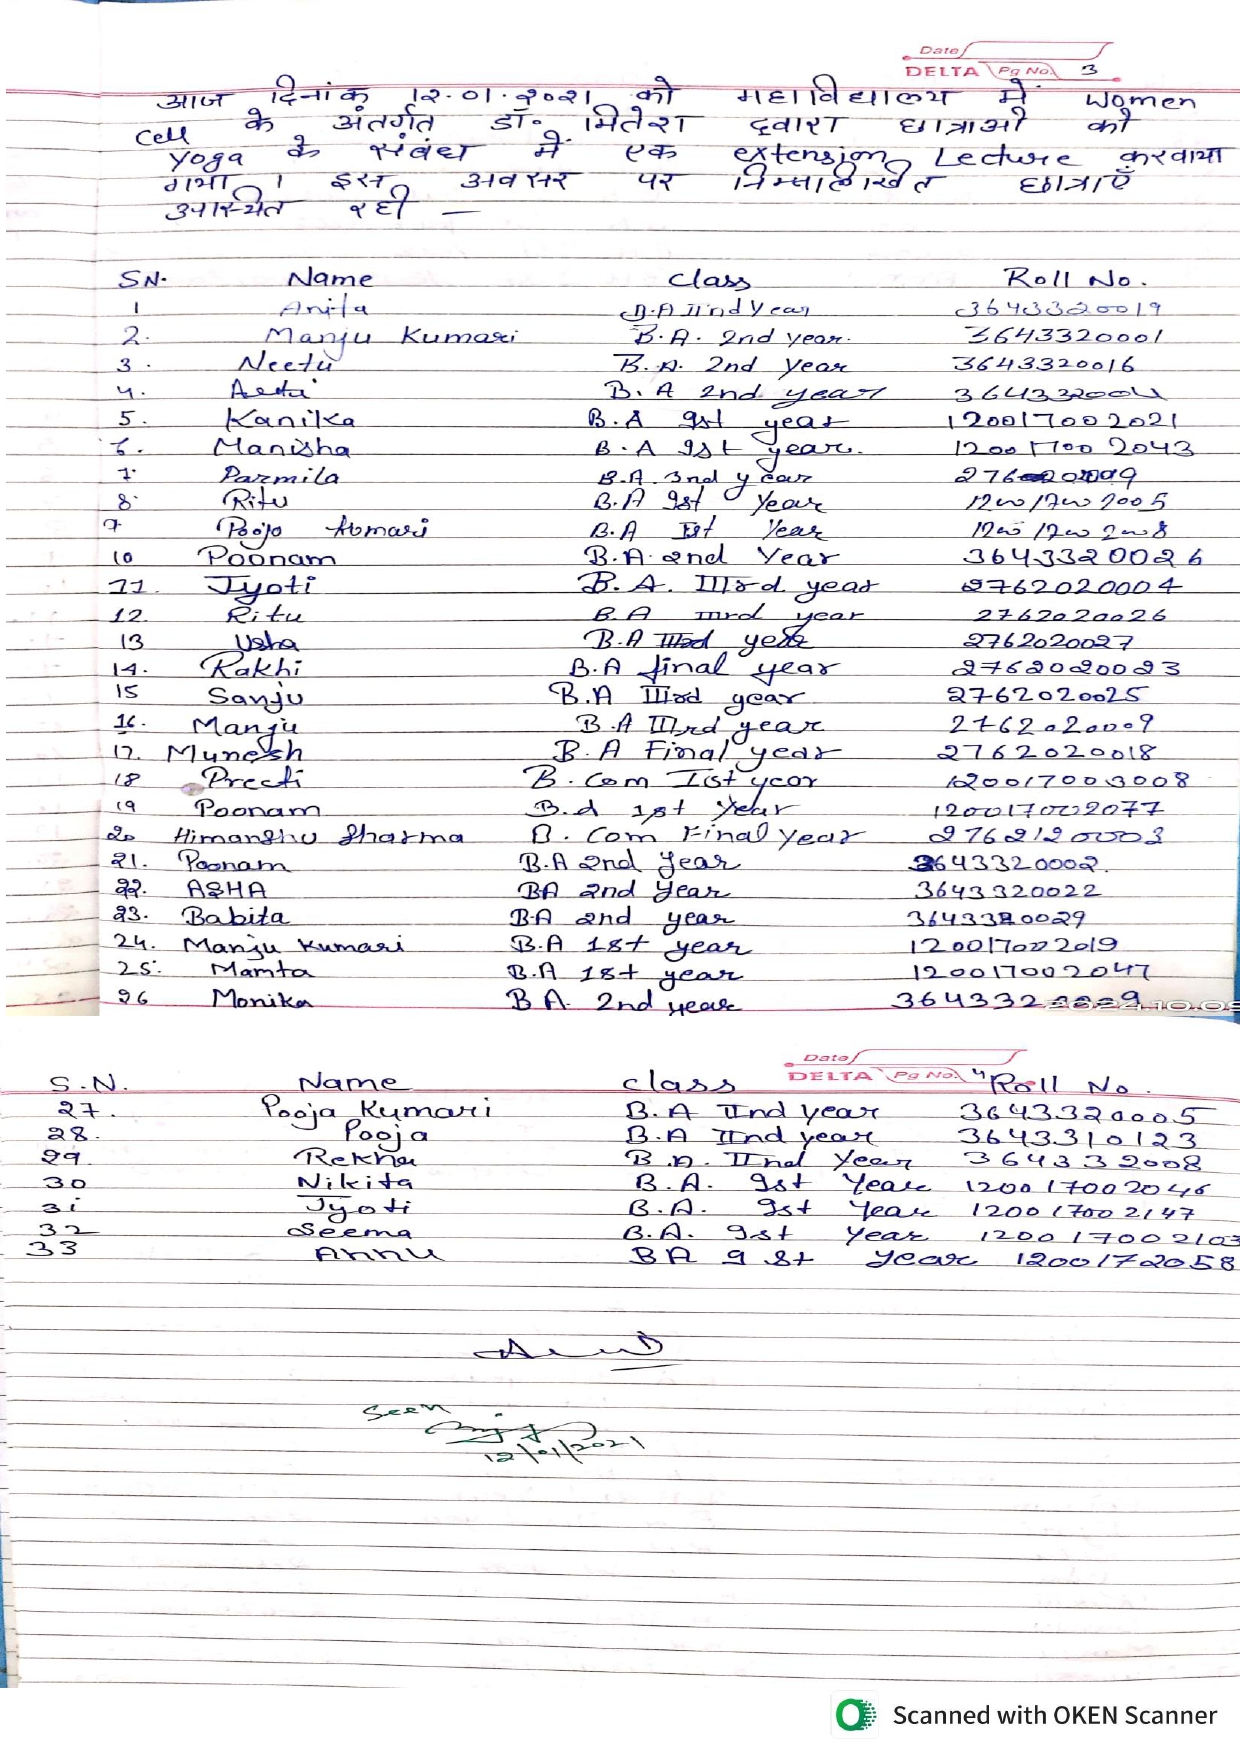 Date
DELTA Pg No. 3
आज दिनांक 12.01.2021 को महाविद्यालय में Women
Cell के अंतर्गत डॉ. मितेश द्वारा छात्राओं को
Yoga के संबंध में एक extension Lecture करवाया
गया । इस अवसर पर निम्नलिखित छात्राएँ
उपस्थित रही —
SN. Name Class Roll No.
1 Anita B.A IInd Year 3643320019
2. Manju Kumari B.A. 2nd year. 3643320001
3. Neetu B.A. 2nd year 3643320016
4. B.A 2nd year
5. Kanika B.A Ist year 120017002021
6. Manisha B.A Ist year. 120017002043
7. Parmila B.A. 3rd year
8. Ritu B.A Ist Year 120017002005
9 B.A Ist Year 120017002008
10 Poonam B.A. 2nd Year 3643320026
11. Jyoti B.A. IIIrd year 2762020004
12. Ritu B.A IIIrd year 2762020026
13 Usha B.A IIIrd year 2762020027
14. Rakhi B.A final year 2762020023
15 Sanju B.A IIIrd year 2762020025
16. Manju B.A IIIrd year 2762020009
17. Munesh B.A Final year 2762020018
18 Preeti B.Com Ist year 120017003008
19 Poonam B.A 1st Year 120017002077
20 Himanshu Sharma B.Com Final Year 2762120003
21. Poonam B.A 2nd year 3643320002.
22. ASHA BA 2nd Year 3643320022
23. Babita B.A 2nd year 3643320029
24. Manju Kumari B.A 1st year 120017002019
25. Mamta B.A 1st year 120017002047
26 Monika B.A. 2nd year
Date
DELTA Pg No. 4
S.N. Name class Roll No.
27. Pooja Kumari B.A IInd year 3643320005
28. Pooja B.A IInd year 3643310123
29 Rekha B.A. IInd Year 364332008
30 Nikita B.A. Ist Year 120017002046
31 Jyoti B.A. Ist Year 120017002147
32 Seema B.A. Ist Year 120017002103
33 Annu BA Ist year 1200172058
Seen
12/01/2021
Scanned with OKEN Scanner